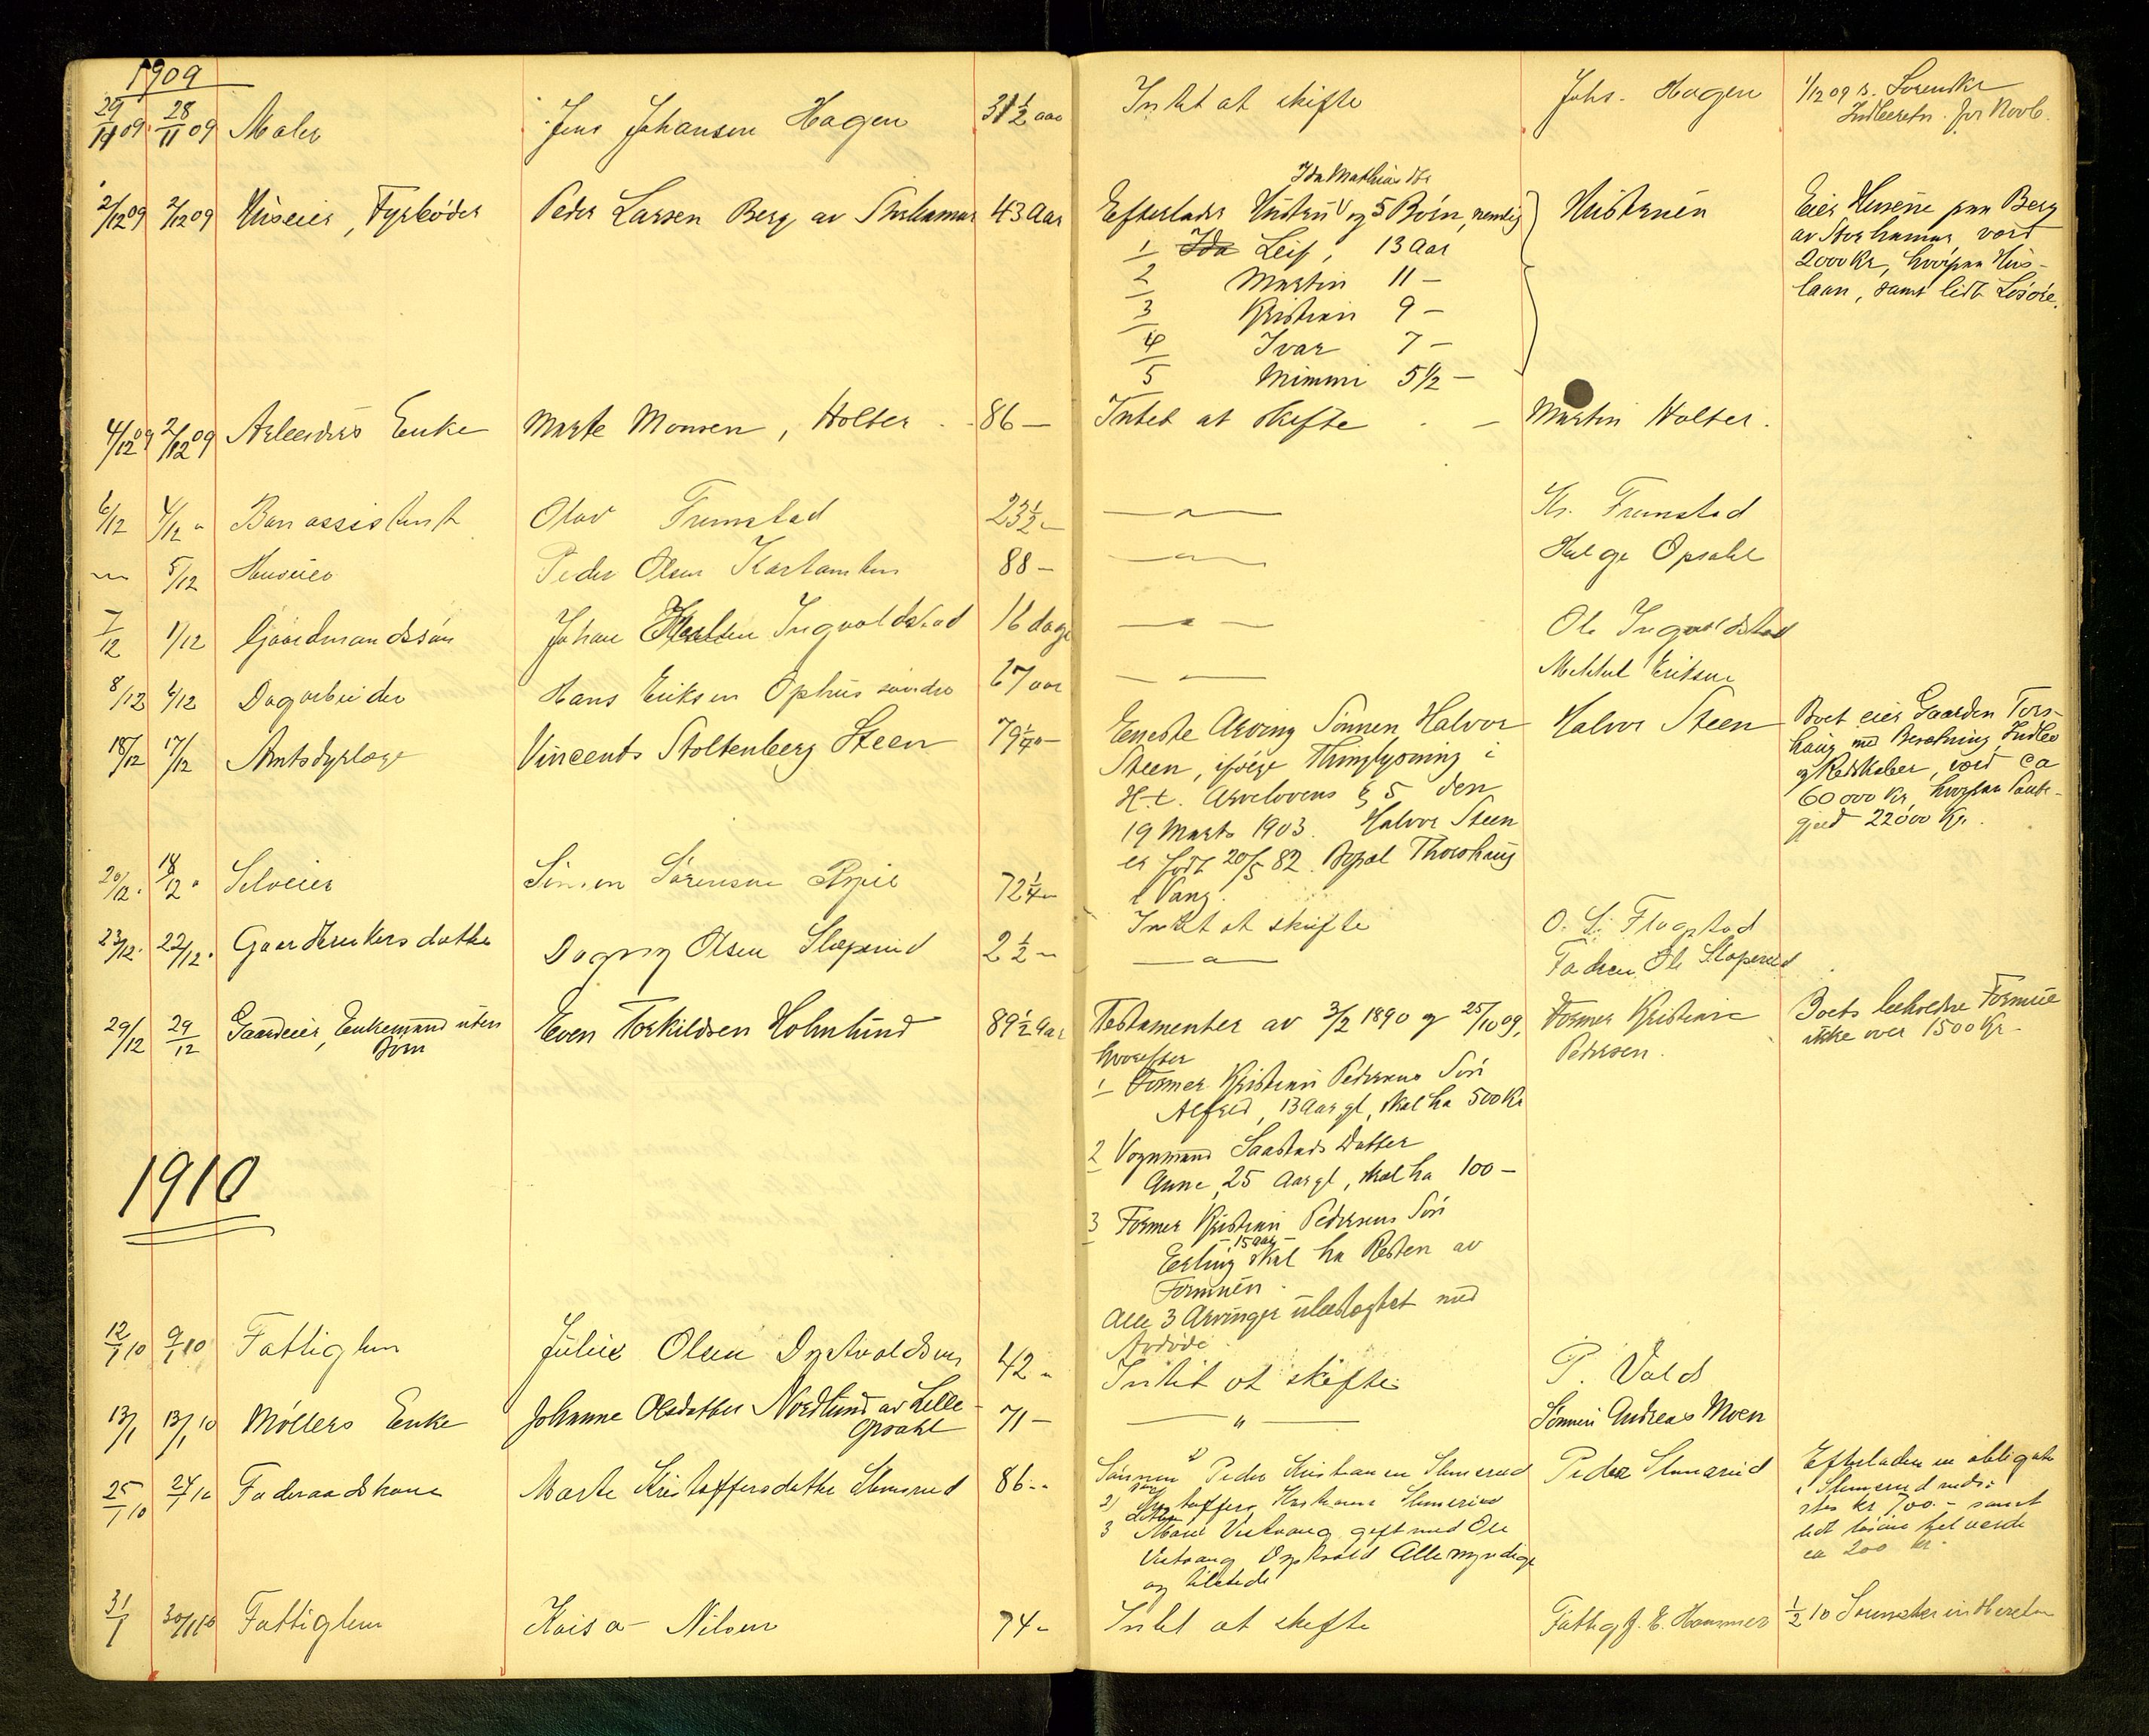 1909
29/11 09 28/11 09 Maler Jens Johansen Hagen 31 1/2 aar Intet at skifte Johs. Hagen 1/12 09 s. Sorenskr
Indberetn. for Novb.
Ida Mathias dtr
2/12 09 2/12 09 Huseier, Fyrbøder Peder Larsen Berg av Storhamar 43 Aar Efterlader Hustru og 5 Børn, nemlig Hustruen Eier Husene paa Berg
1 Ida Leif, 13 Aar av Storhamar, værd
2 Martin 11 — 2000 Kr, hvorpaa Hus-
3 Kristian 9 — laan, samt lidt Løsøre.
4 Ivar 7 —
5 Mimmi 5 1/2 —
4/12 09 2/12 09 Arbeiders Enke Marte Monsen, Holter 86 — Intet at skifte — Martin Holter.
6/12 4/12 " Banassistent Olav Frumstad 23 1/2 " — " — Kr. Frumstad
— " 5/12 Huseier Peder Olsen 88 — — " — Helge Opsahl
7/12 1/12 Gaardmandssøn Johan Ingvoldstad 16 dage — " — Ole Ingvoldstad
8/12 6/12 Dagarbeider Hans Eriksen Ophus søndre 67 aar — — Eriksen
18/12 17/12 Amtsdyrlæge Vincents Stoltenberg Steen 79 1/4 — Eneste Arving Sønnen Halvor Halvor Steen Boet eier Gaarden Tors-
Steen, ifølge Thinglysning i haug med Besætning, Indbo
H. t. Arvelovens § 5 den og Redskaber, værd ca
19 Marts 1903. Halvor Steen 60 000 Kr, hvorpaa Pante-
er født 20/5 82. Bopæl Thorshaug gjæld 22000 Kr.
i Vang.
20/12. 18/12 " Selveier Simen Sørensen 72 1/4 " Intet at skifte O. S. Flagstad
23/12. 22/12. Gaardbrukersdatter Dagny Olsen Slaperud 2 1/2 — — " — Faderen Ole Slaperud
29/12 29/12 Gaardeier, Enkemand uten Even Torkildsen Holmlund 89 1/2 Aar Testamenter av 3/2 1890 og 25/10 09, Former Kristian Boets beholdne Formue
Børn hvorefter Pedersen. ikke over 1500 Kr.
1 Former Kristian Pedersens Søn
Alfred, 13 Aar gl, skal ha 500 Kr
2 Vognmand Saastads Datter
Anne, 25 Aar gl, skal ha 100 —
1910
3 Former Kristian Pedersens Søn
— 15 Aar —
Erling skal ha Resten av
Formuen.
Alle 3 Arvinger ubeslægtet med
Avdøde.
12/1 10 9/1 10 Fattiglem Julie Olsen Dystvoldsen 42 " Intet at skifte P. Vold
13/1 13/1 10 Møllers Enke Johanne Olsdatter Nordlund av Lille 71 — — " — Sønnen Andreas Moen
Opsahl
25/1 10 24/1 10 Føderaadskone Marte Kristoffersdatter Slemsrud 86 " Sønnen 1) Peder Kristiansen Slemsrud Peder Slemsrud Efterlader en obligation
2) søn Kristoffer Kristiansen Slemsrud i Slemsrud
3 datter Marie Viksvang gift med Ole kr 700.- samt
Viksvang Dystvold Alle myndige lidt løsøre til værdi
og tilstede ca 200 kr.
31/1 30/1 10 Fattiglem Kaisa Nilsen 74 " Intet at skifte Fattigf. E. Hammer 1/2 10 Sorenskr indberetn